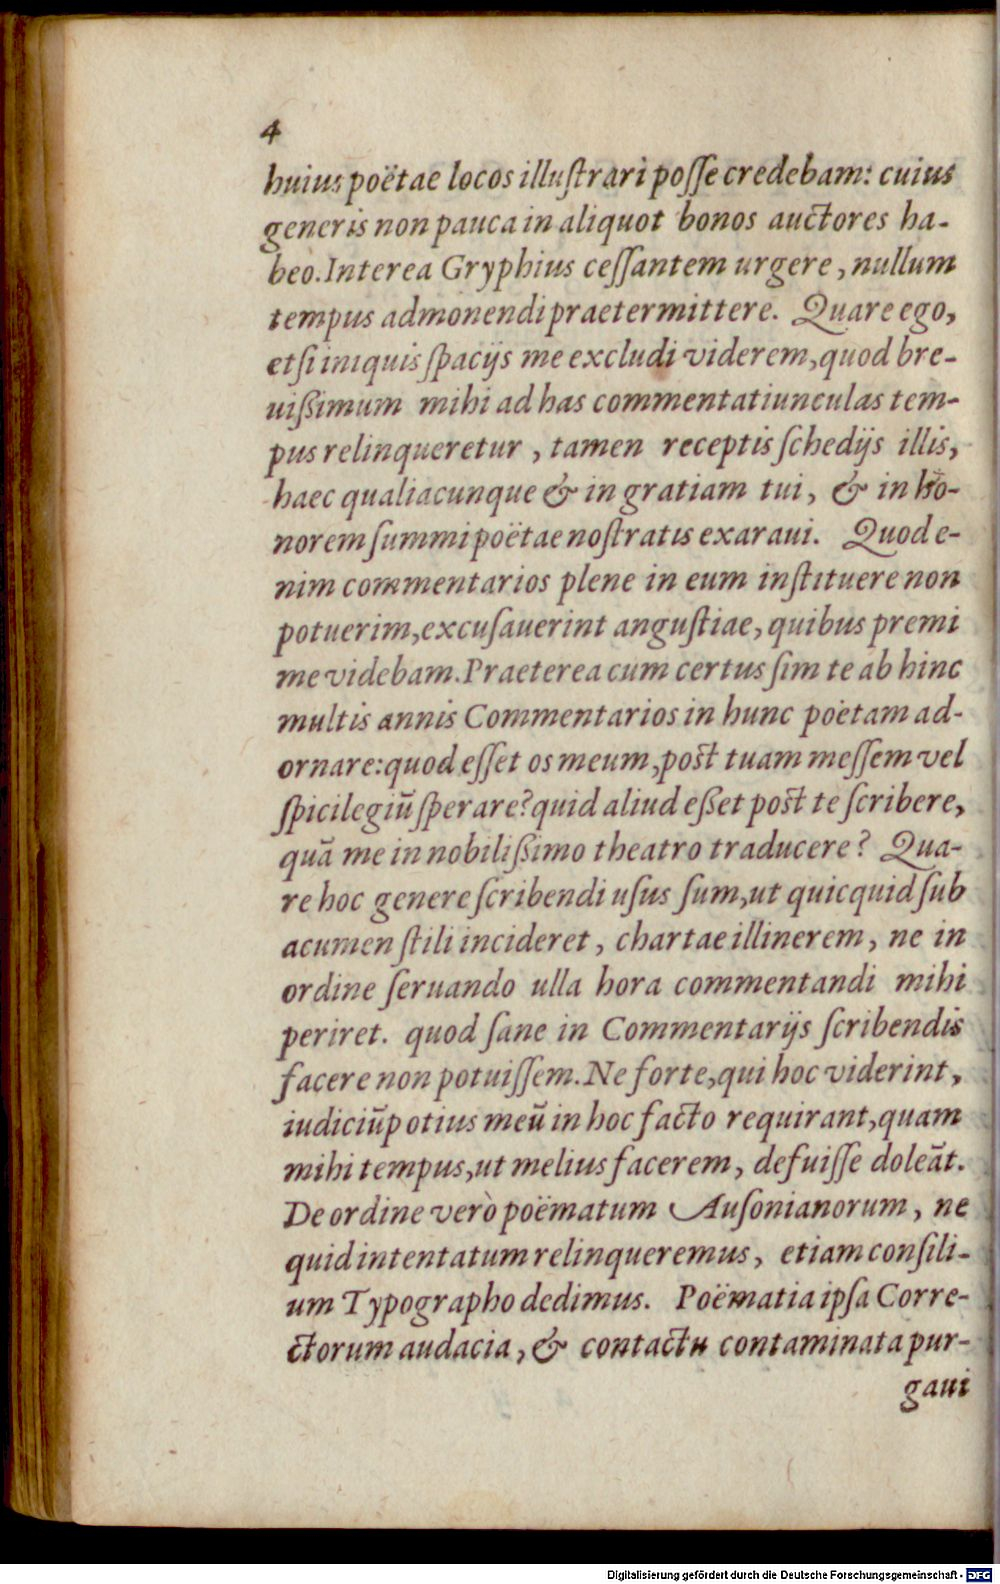 4
huius poëtae locos illuſtrari poſſe credebam: cuius
generis non pauca in aliquot bonos auctores ha-
beo. Interea Gryphius ceſſantem urgere, nullum
tempus admonendi praetermittere. Quare ego,
etſi iniquis ſpacijs me excludi viderem, quod bre-
uißimum mihi ad has commentatiunculas tem-
pus relinqueretur, tamen receptis ſchedijs illis,
haec qualiacunque & in gratiam tui, & in ho-
norem ſummi poëtae noſtratis exaraui. Quod e-
nim commentarios plene in eum inſtituere non
potuerim, excuſauerint anguſtiae, quibus premi
me videbam. Praeterea cum certus ſim te ab hinc
multis annis Commentarios in hunc poëtam ad-
ornare: quod eſſet os meum, poſt tuam meſſem vel
ſpicilegiū ſperare? quid aliud eßet poſt te ſcribere,
quā me in nobilißimo theatro traducere? Qua-
re hoc genere ſcribendi uſus ſum, ut quicquid ſub
acumen ſtili incideret, chartae illinerem, ne in
ordine ſeruando ulla hora commentandi mihi
periret. quod ſane in Commentarijs ſcribendis
facere non potuiſſem. Ne forte, qui hoc viderint,
iudiciū potius meū in hoc facto requirant, quam
mihi tempus, ut melius facerem, defuiſſe doleāt.
De ordine verò poëmatum Auſonianorum, ne
quid intentatum relinqueremus, etiam conſili-
um Typographo dedimus. Poëmatia ipſa Corre-
ctorum audacia, & contactu contaminata pur-
gaui
Digitalisierung gefördert durch die Deutsche Forschungsgemeinschaft - DFG